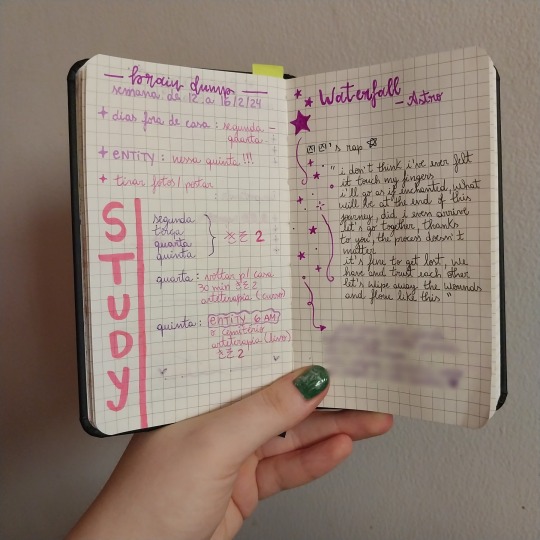 — brain dump —
semana de 12 a 16/2/24
+ dias fora de casa : segunda
quarta
+ ENTITY : nessa quinta !!!
+ tirar fotos / postar
STUDY
segunda
terça
quarta
quinta
2
quarta : voltar p/ casa
30 min 2
arteterapia (curso)
quinta : ENTITY 6 AM
o cemitério
arteterapia (livro)
2
Waterfall
- Astro
's rap
" i don't think i've ever felt
it touch my fingers
i'll go as if enchanted, what
will be at the end of this
journey, did i even arrive
let's go together, thanks
to you, the process doesn't
matter
it's fine to get lost, we
have and trust each other
let's wipe away the wounds
and flow like this "